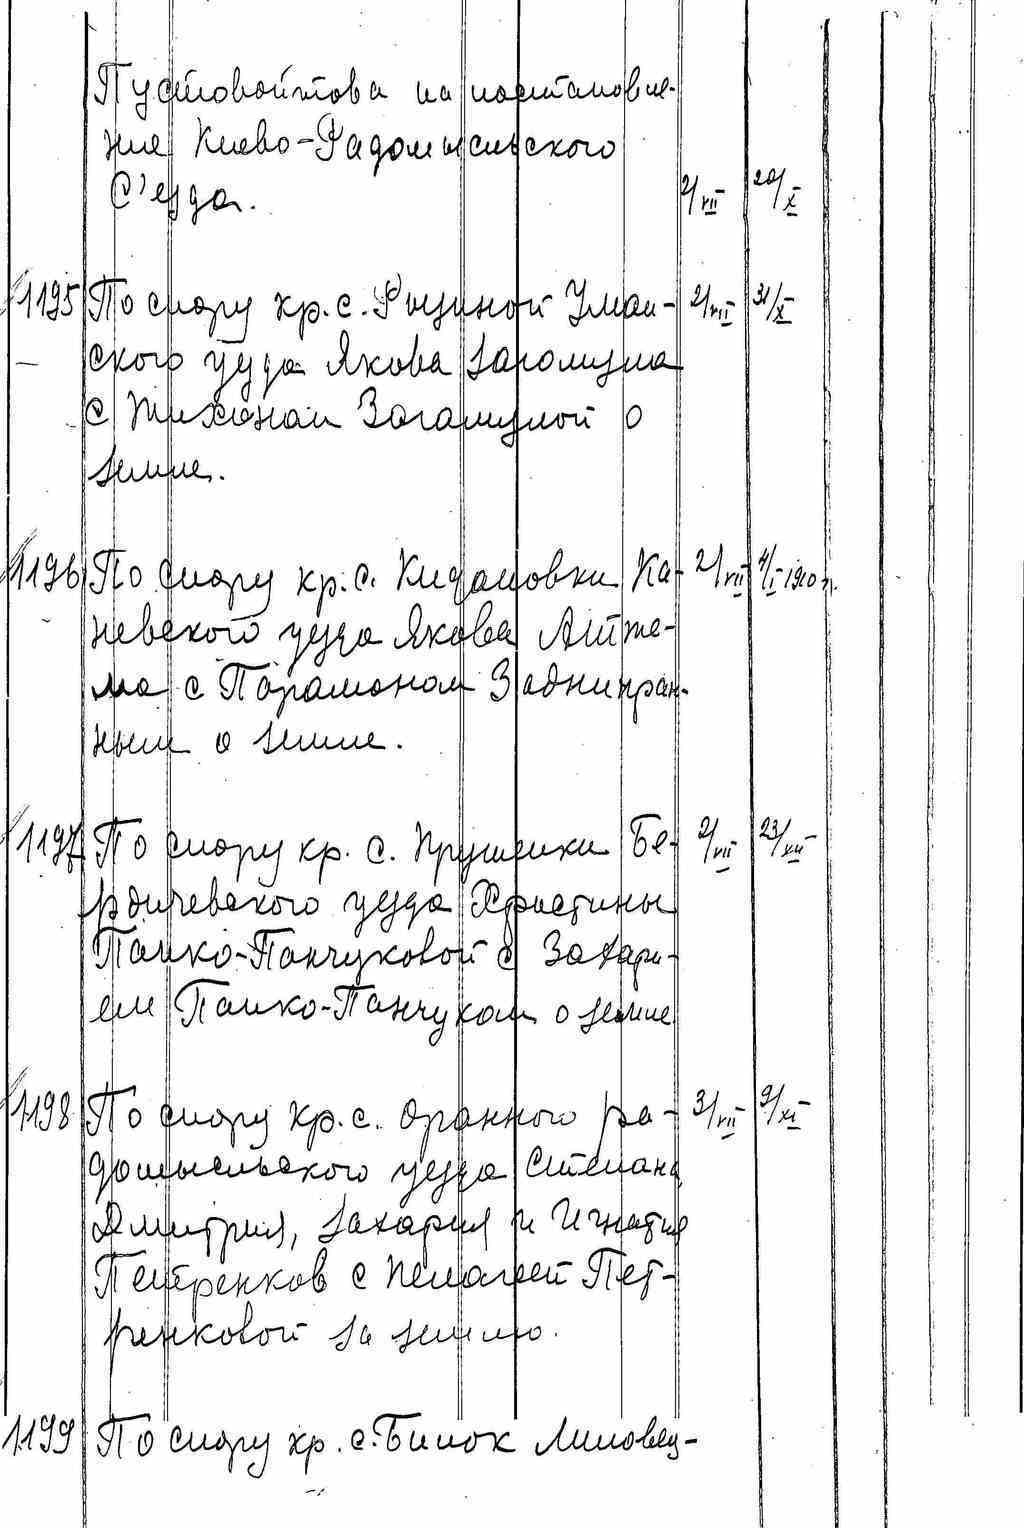 Пустовойтова на постановле-
ние Киево-Радомысльского
С'езда. 2/VII 20/X
1195 По спору кр. с. Рыжиной Уман- 2/VII 31/X
ского уезда Якова Загамузла
с Тихоном Загамузлой о
земле.
1196 По спору кр. с. Кидановки Ка- 2/VII 4/I 1910 г.
невского уезда Якова Артю-
ма с Парамоном Заднипран-
ным о земле.
1197 По спору кр. с. Прушинки Бе- 2/VII 23/XII
рдичевского уезда Христины
Панко-Панчуковой с Захари-
ем Панко-Панчуком о земле
1198 По спору кр. с. Оранного ра- 3/VII 9/XI
домысльского уезда Степана,
Дмитрия, Захария и Игнатия
Петренков с Пелагеей Пет-
ренковой за землю.
1199 По спору кр. с. Билок Липовец-